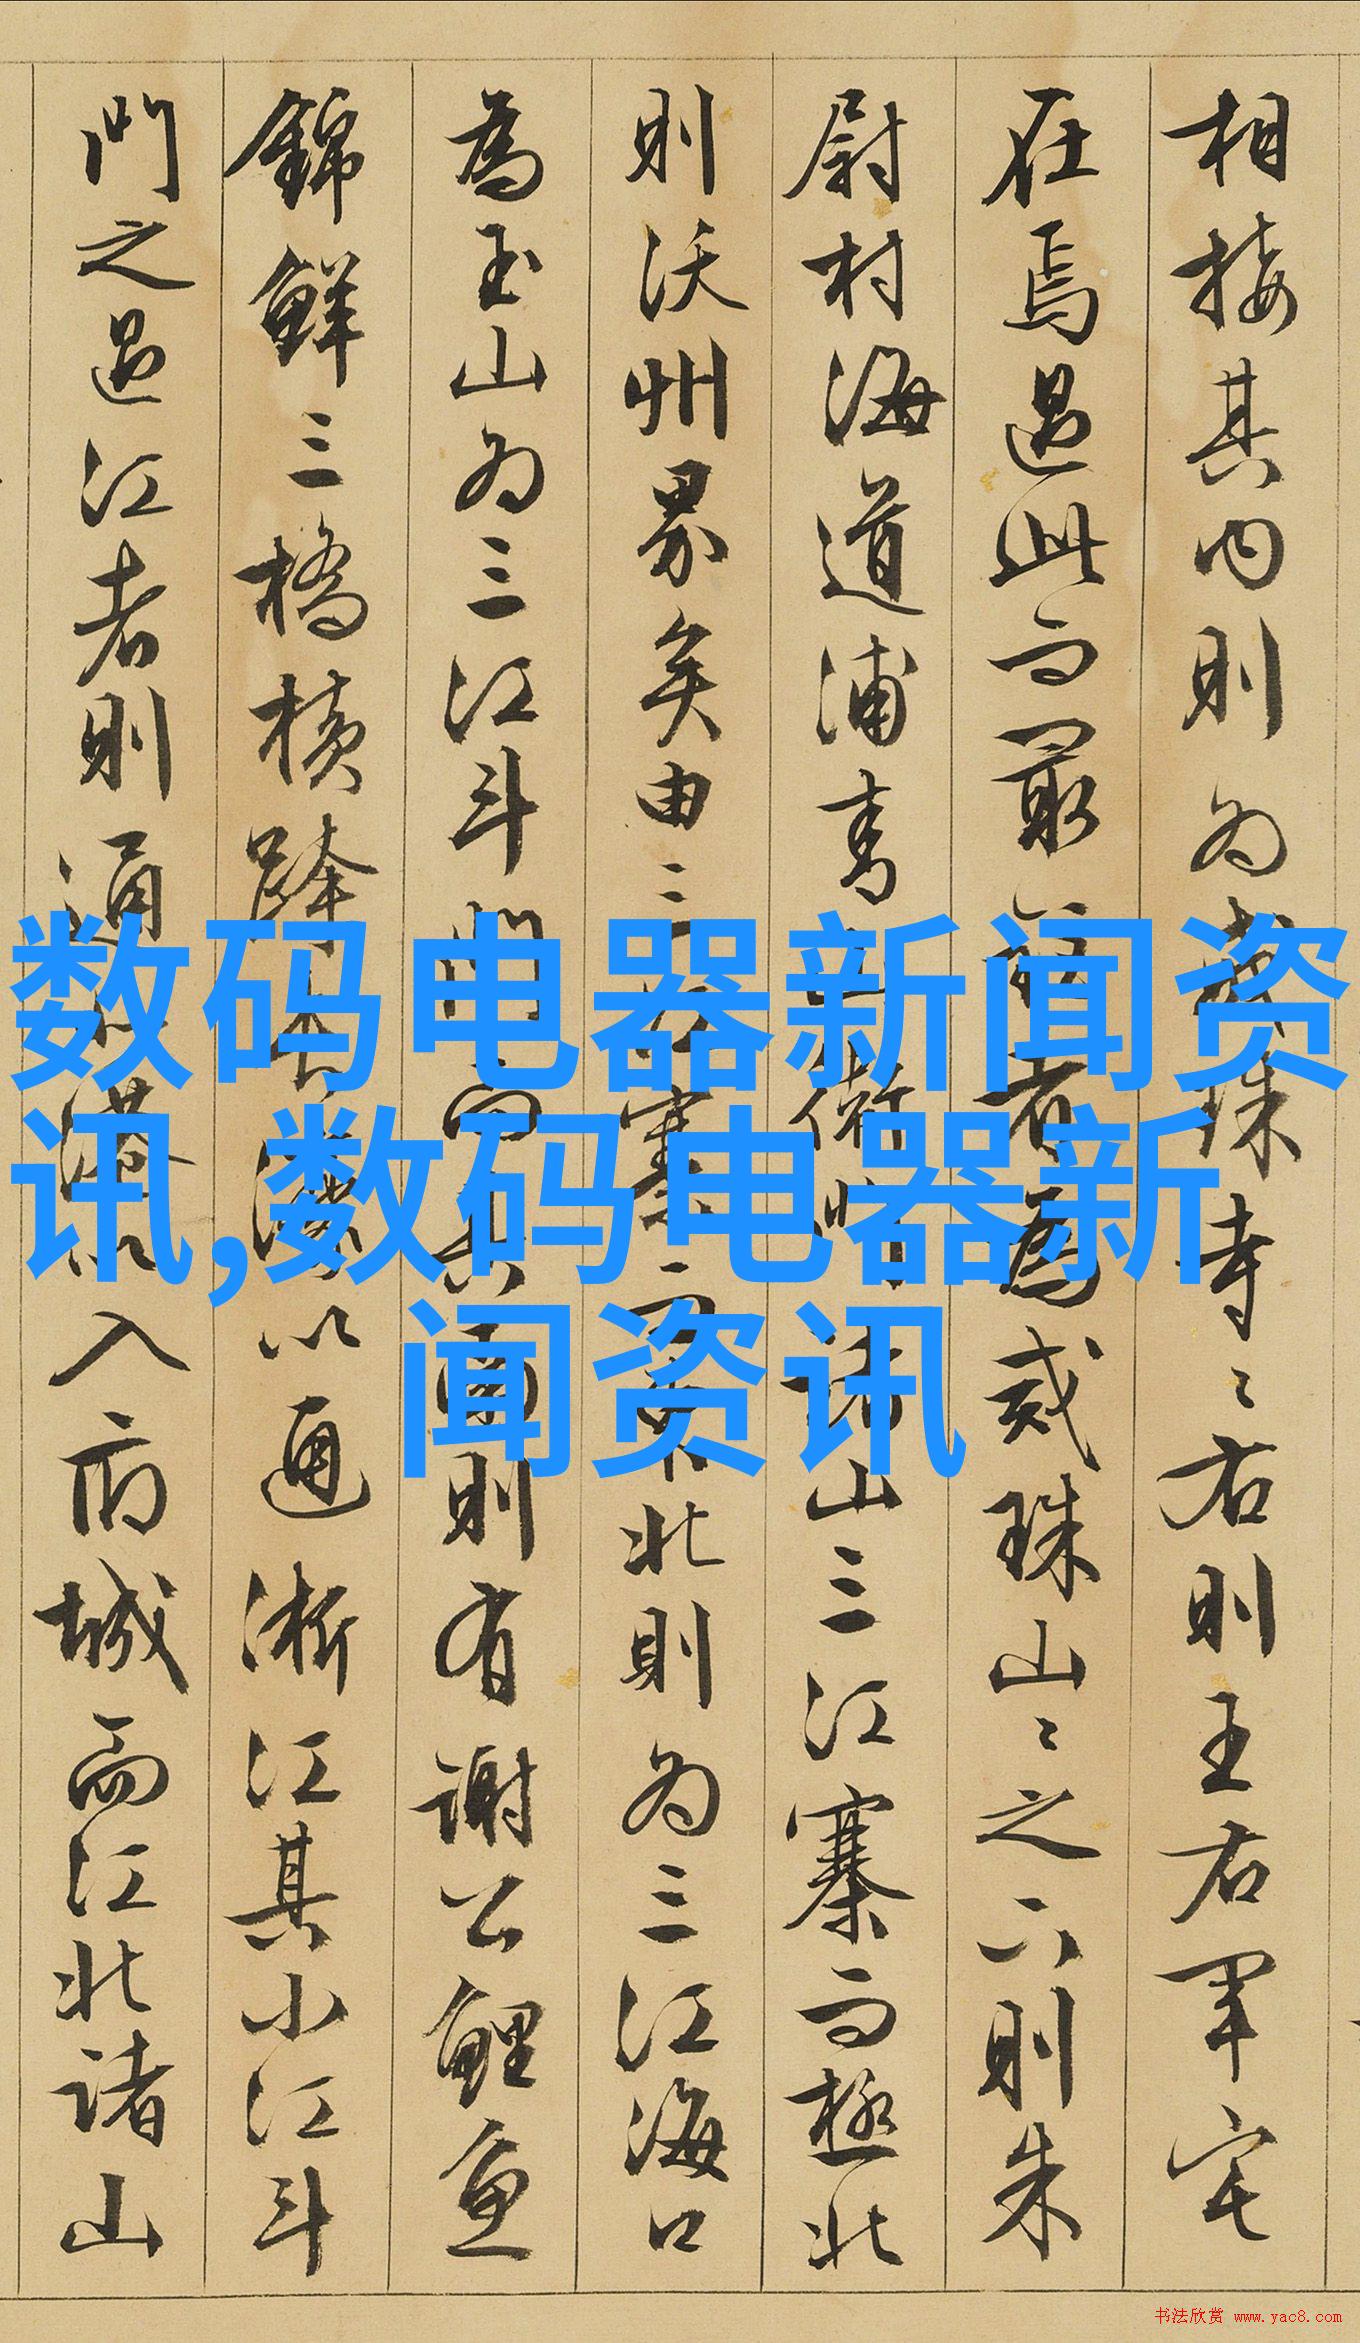 相接其內則為戒珠寺〻右則王右軍宅
在焉過此而最
者為戒珠山〻之下則朱
尉村海道浦
山三江寨而極北
則沃州界矣由三江寨
北則為三江海口
為玉山為三江斗門
則有謝公鯉魚
錦鮮三橋橫跨
以通浙江其小江斗
門之過江者則通
港以入府城而江北諸山
数码电器新闻资
讯,数码电器新
闻资讯
书法欣赏 www.yac8.com